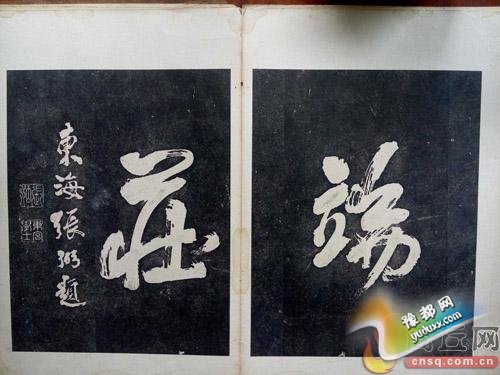 端
莊
東海張弼題
豫都网
yuduxx.com
cnsq.com.cn